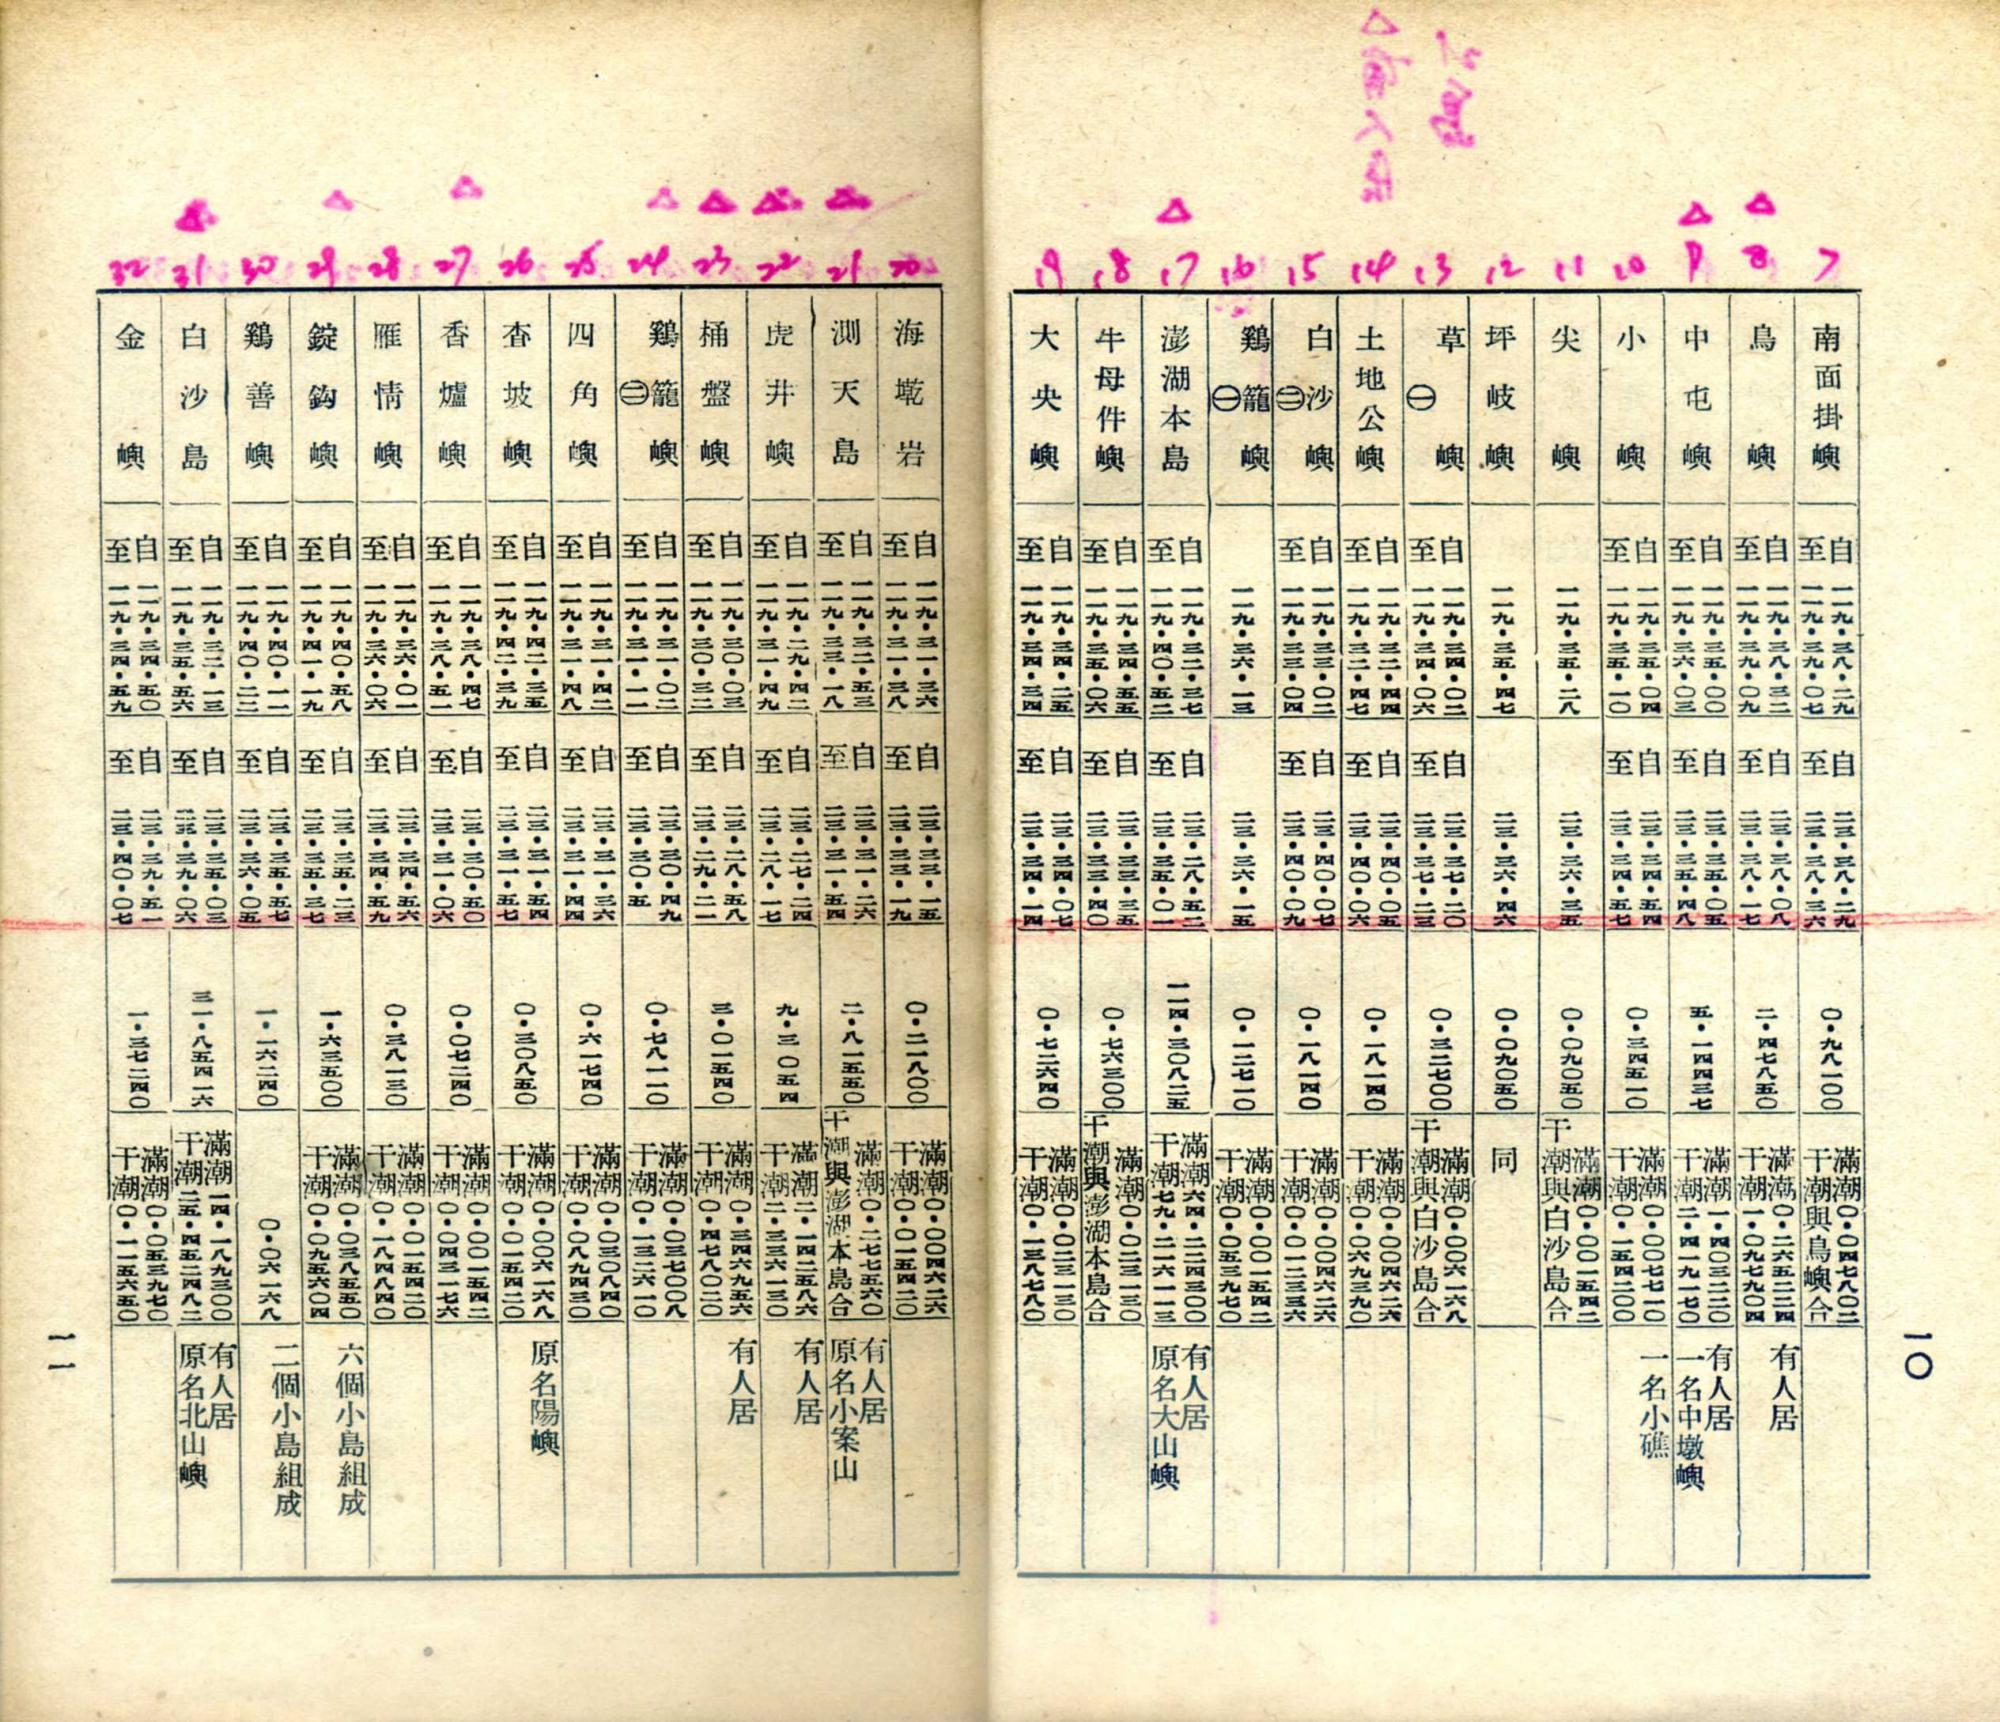 小島
△有人居
7
南面掛嶼
自一一九・三八・二九
至一一九・三九・〇七
自二三・三八・二九
至二三・三八・三六
〇・九八一〇〇
滿潮〇・〇四七八〇二
干潮與鳥嶼合
△
8
鳥嶼
自一一九・三八・三二
至一一九・三九・〇九
自二三・三八・〇八
至二三・三八・一七
二・四七八五〇
滿潮〇・二六五二二四
干潮一・〇九七九〇四
有人居
△
9
中屯嶼
自一一九・三五・〇〇
至一一九・三六・〇三
自二三・三五・〇五
至二三・三五・四八
五・一四四三七
滿潮一・四〇三二二〇
干潮二・四一九一七〇
有人居
一名中墩嶼
10
小嶼
自一一九・三五・〇四
至一一九・三五・一〇
自二三・三四・五四
至二三・三四・五七
〇・三四五一〇
滿潮〇・〇〇七七一〇
干潮〇・一五四二〇〇
一名小礁
11
尖嶼
一一九・三五・二八
二三・三六・三五
〇・〇九〇五〇
滿潮〇・〇〇一五四二
干潮與白沙島合
12
坪岐嶼
一一九・三五・四七
二三・三六・四六
〇・〇九〇五〇
同
13
草嶼㊀
自一一九・三四・〇二
至一一九・三四・〇六
自二三・三七・二〇
至二三・三七・二三
〇・三二七〇〇
滿潮〇・〇〇六一六八
干潮與白沙島合
14
土地公嶼
自一一九・三二・四四
至一一九・三二・四七
自二三・四〇・〇五
至二三・四〇・〇六
〇・一八一四〇
滿潮〇・〇〇四六二六
干潮〇・〇六九三九〇
15
白沙嶼㊁
自一一九・三三・〇二
至一一九・三三・〇四
自二三・四〇・〇七
至二三・四〇・〇九
〇・一八一〇〇
滿潮〇・〇〇四六二六
干潮〇・〇一二三三六
16
鷄籠嶼㊀
一一九・三六・一三
二三・三六・一五
〇・一二七一〇
滿潮〇・〇〇一五四二
干潮〇・〇五三九七〇
△
17
澎湖本島
自一一九・三二・三七
至一一九・四〇・五二
自二三・二八・五二
至二三・三五・〇一
一一四・三〇八二五
滿潮六四・二二四三〇〇
干潮七九・二一六一一三
有人居
原名大山嶼
18
牛母件嶼
自一一九・三四・五五
至一一九・三五・〇六
自二三・三三・三五
至二三・三三・四〇
〇・七六三〇〇
滿潮〇・〇二三一三〇
干潮與澎湖本島合
19
大央嶼
自一一九・三四・二五
至一一九・三四・三四
自二三・三四・〇七
至二三・三四・一四
〇・七二六四〇
滿潮〇・〇二三一三〇
干潮〇・一三八七八〇
一〇
20
海墘岩
自一一九・三一・三六
至一一九・三一・三八
自二三・三三・一五
至二三・三三・一九
〇・二一八〇〇
滿潮〇・〇〇四六二六
干潮〇・〇一五四二〇
△
21
測天島
自一一九・三二・五三
至一一九・三三・一八
自二三・三一・二六
至二三・三一・五四
二・八一五五〇
滿潮〇・二七七五六〇
干潮與澎湖本島合
有人居
原名小案山
△
22
虎井嶼
自一一九・二九・四二
至一一九・三一・四九
自二三・二七・二四
至二三・二八・一七
九・三〇五四
滿潮二・一四二五八六
干潮二・三三六一三〇
有人居
△
23
桶盤嶼
自一一九・三〇・〇三
至一一九・三〇・三二
自二三・二八・五八
至二三・二九・二一
三・〇一五四〇
滿潮〇・三四六九五六
干潮〇・四七八〇二〇
有人居
△
24
鷄籠嶼㊁
自一一九・三一・〇二
至一一九・三一・一一
自二三・三〇・四九
至二三・三〇・五
〇・七八一二〇
滿潮〇・〇三七〇〇八
干潮〇・一三二六一〇
25
四角嶼
自一一九・三一・四二
至一一九・三一・四八
自二三・三一・三六
至二三・三一・四四
〇・六一七四〇
滿潮〇・〇三〇八四〇
干潮〇・〇八九四三〇
26
杳坡嶼
自一一九・四二・三五
至一一九・四二・三九
自二三・三一・五四
至二三・三一・五七
〇・三〇八五〇
滿潮〇・〇〇六一六八
干潮〇・〇一五四二〇
原名陽嶼
△
27
香爐嶼
自一一九・三八・四七
至一一九・三八・五一
自二三・三〇・五〇
至二三・三一・〇六
〇・〇七二四〇
滿潮〇・〇〇一五四二
干潮〇・〇四三一七六
28
雁情嶼
自一一九・三六・〇一
至一一九・三六・〇六
自二三・三四・五六
至二三・三四・五九
〇・三八一三〇
滿潮〇・〇一五四二〇
干潮〇・一八四八四〇
△
29
錠鈎嶼
自一一九・四〇・五八
至一一九・四一・一九
自二三・三五・二三
至二三・三五・三七
一・六三五〇〇
滿潮〇・〇三八五五〇
干潮〇・〇九五六〇四
六個小島組成
30
鷄善嶼
自一一九・四〇・一一
至一一九・四〇・二二
自二三・三五・五七
至二三・三六・〇五
一・一六二四〇
〇・〇六一六八
二個小島組成
△
31
白沙島
自一一九・三二・一三
至一一九・三五・五六
自二三・三五・〇三
至二三・三九・〇六
三一・八五四一六
滿潮一四・一八九三〇〇
干潮二五・四五二四八二
有人居
原名北山嶼
32
金嶼
自一一九・三四・五〇
至一一九・三四・五九
自二三・三九・五一
至二三・四〇・〇七
一・三七二四〇
滿潮〇・〇五三九七〇
干潮〇・一一五六五〇
一一